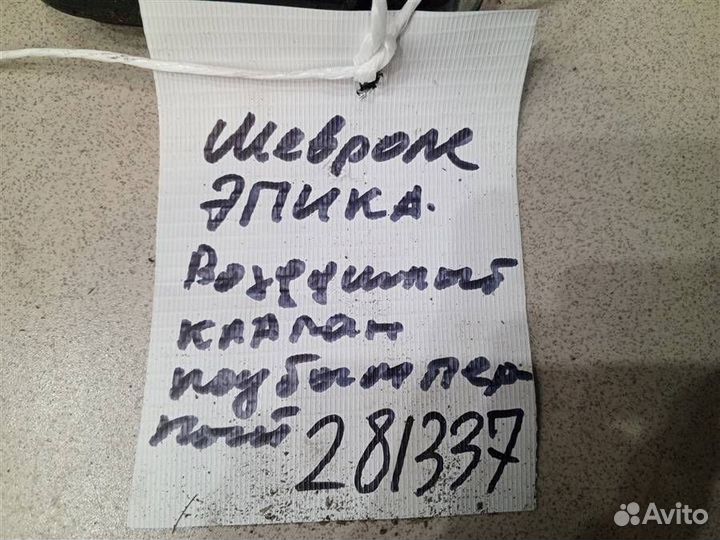 Шевроле
ЭПИКА.
Воздушный
клапан
подбампер
ный 281337
Avito